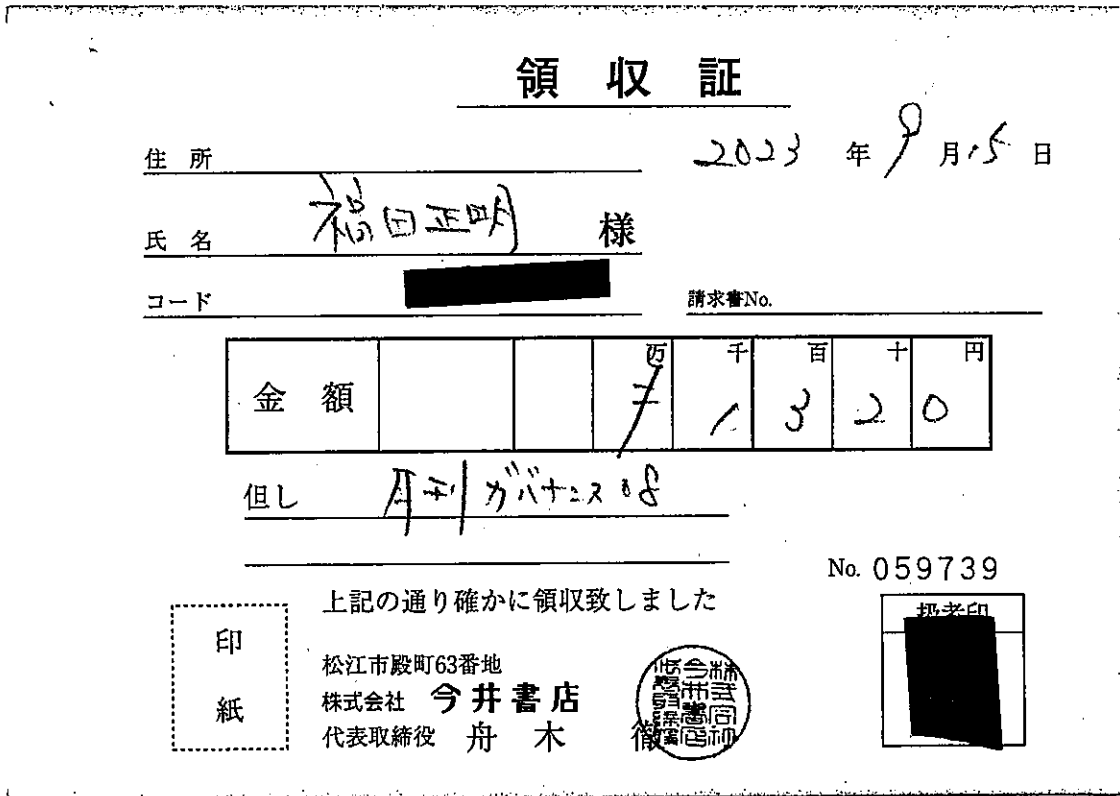 領収証
2023 年 9 月 15 日
住所
氏名 福田正明 様
コード
請求書No.
金額 万 千 百 十 円
¥ 1 3 2 0
但し 月刊 ガバナンス 08
No. 059739
上記の通り確かに領収致しました
扱者印
印紙
松江市殿町63番地
株式会社 今井書店
代表取締役 舟木